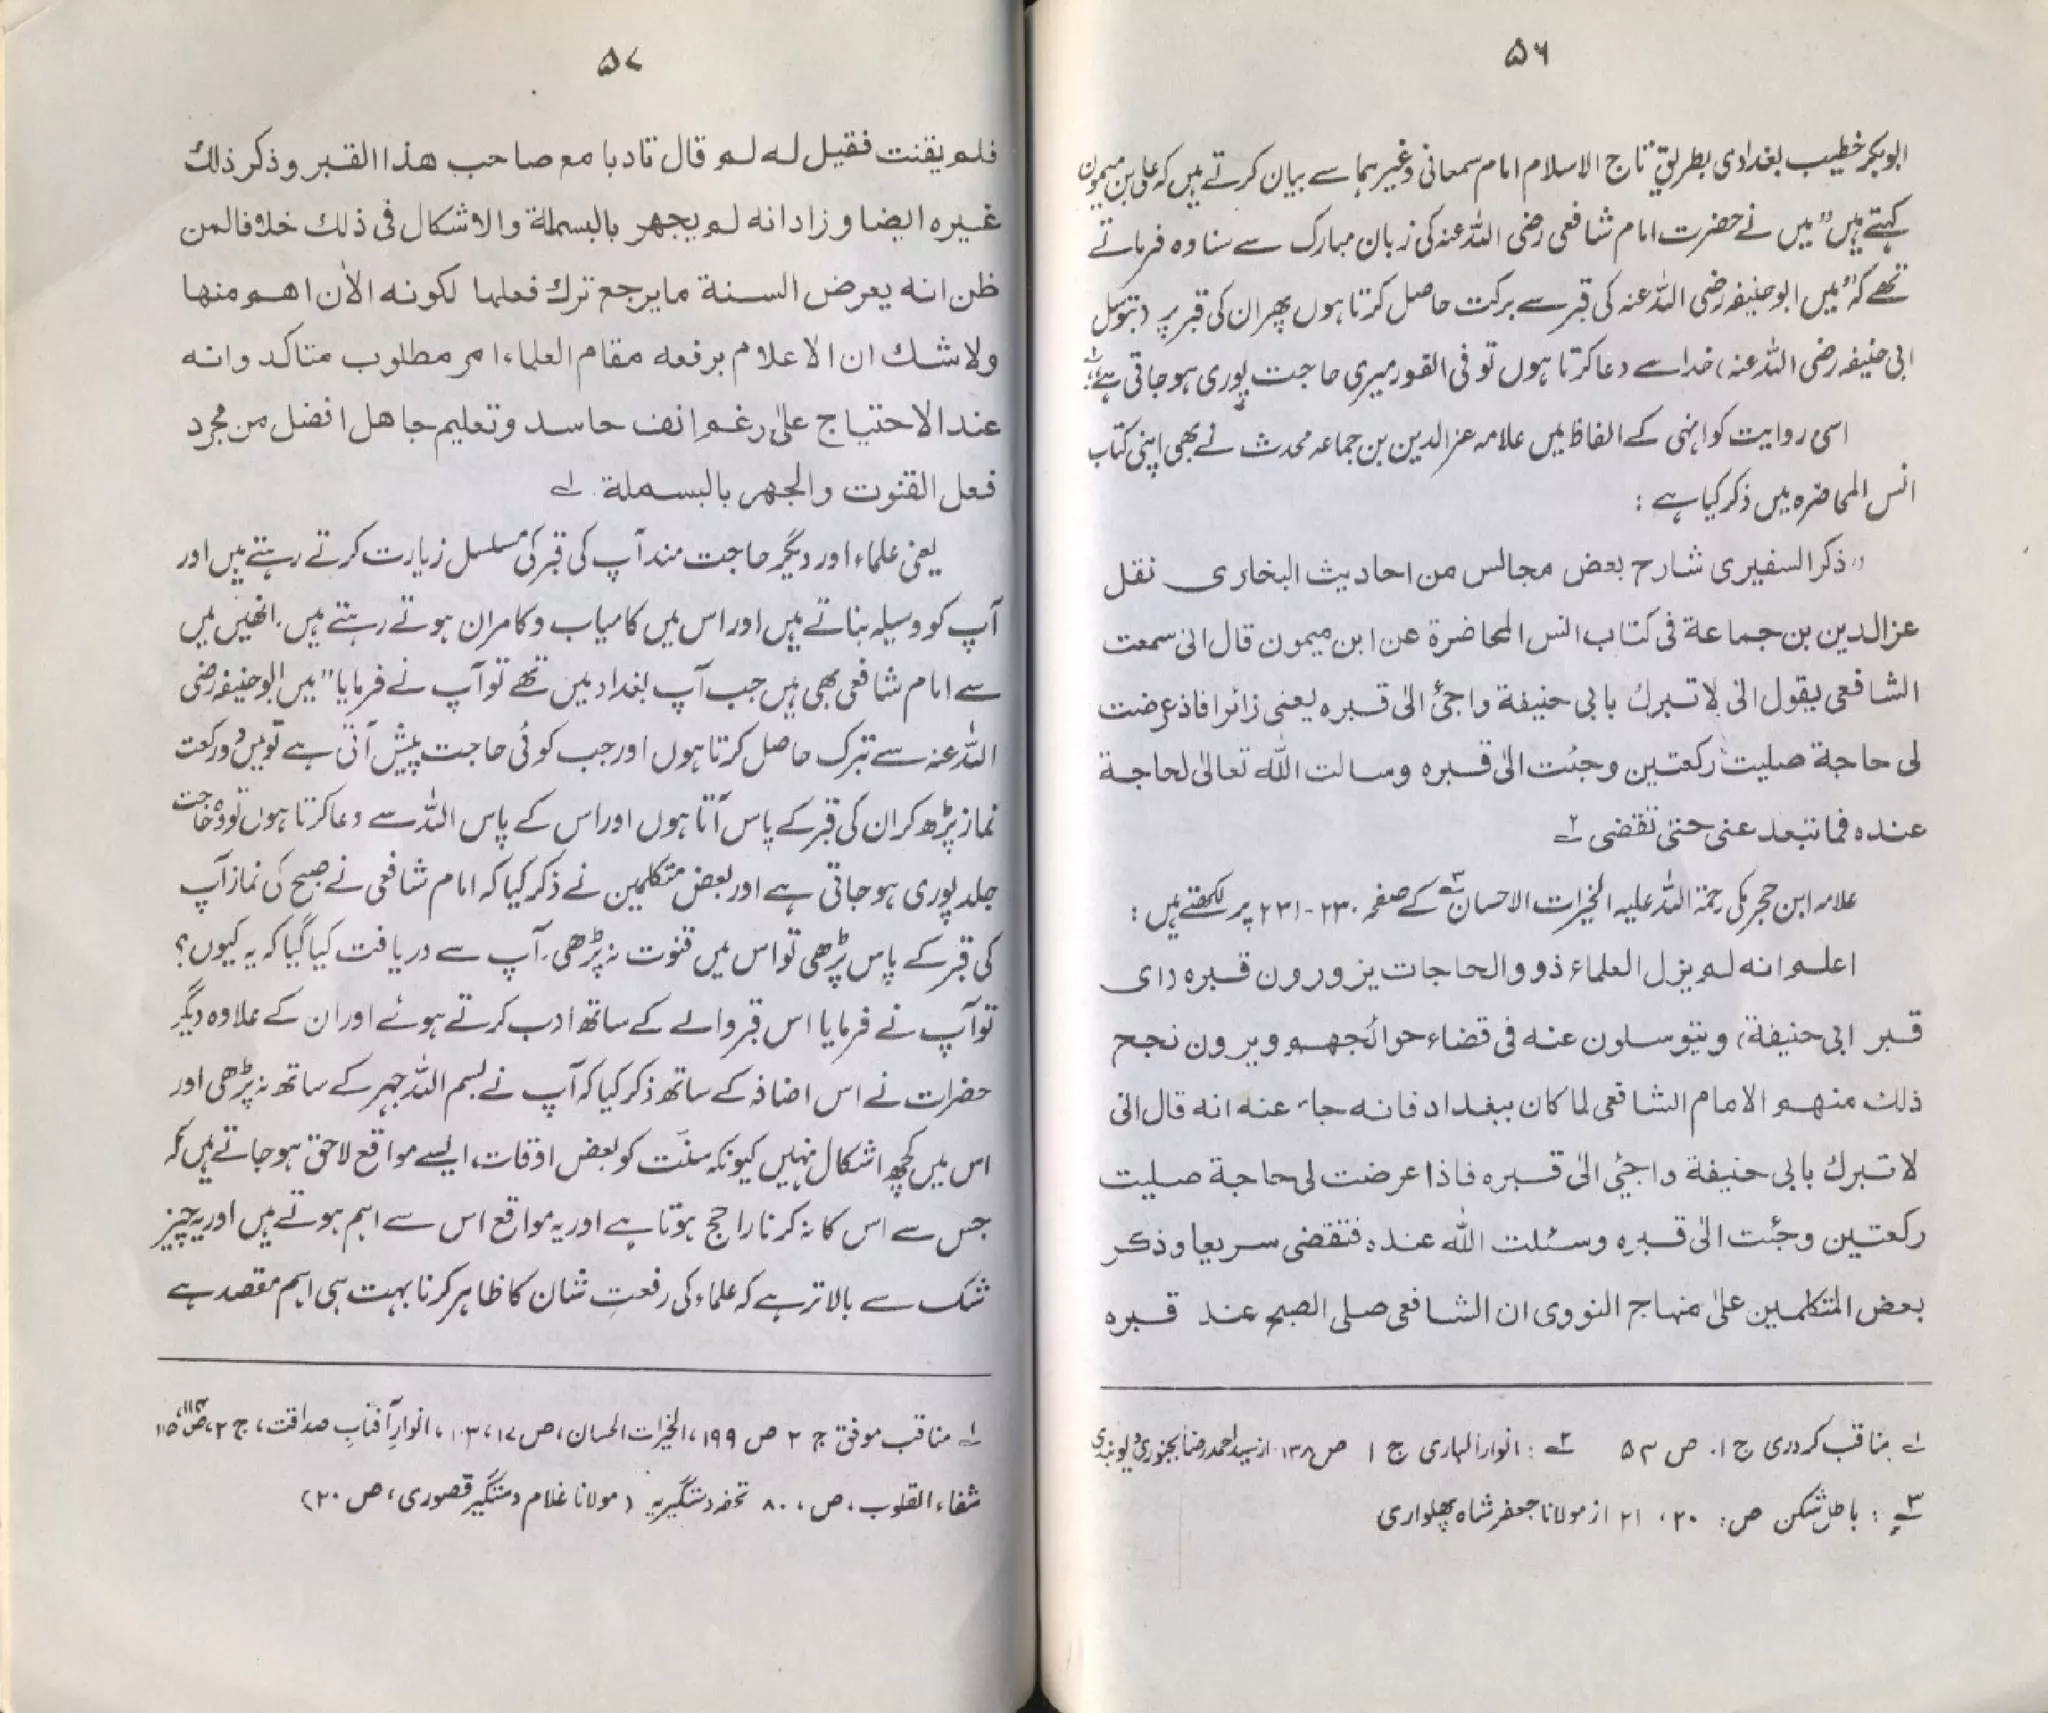 ۵۶
ابوبکر خطیب بغدادی بطریق تاج الاسلام امام سمعانی وغیرہما سے بیان کرتے ہیں کہ علی بن میمون
کہتے ہیں "میں نے حضرت امام شافعی رضی اللہ عنہ کی زبان مبارک سے سنا وہ فرماتے
تھے کہ "میں ابوحنیفہ رضی اللہ عنہ کی قبر سے برکت حاصل کرتا ہوں پھر ان کی قبر پر (بتوسل
ابی حنیفہ رضی اللہ عنہ) خدا سے دعا کرتا ہوں تو فی الفور میری حاجت پوری ہو جاتی ہے" ۱؎
اسی روایت کو انہی کے الفاظ میں علامہ عزالدین بن جماعہ محدث نے بھی اپنی کتاب
انس المحاضرہ میں ذکر کیا ہے :
"ذکر السفیری شارح بعض مجالس من احادیث البخاری نقل
عزالدین بن جماعة فی کتاب انس المحاضرة عن ابن میمون قال انی سمعت
الشافعی یقول انی لاتبرک بابی حنیفة واجئ الیٰ قبره یعنی زائرا فاذ عرضت
لی حاجة صلیت رکعتین وجئت الیٰ قبره وسالت الله تعالیٰ لحاجة
عنده فما تبعد عنی حتی تقضی ۲؎
علامہ ابن حجر مکی رحمۃ اللہ علیہ الخیرات الاحسان ۳؎ کے صفحہ ۲۳۰-۲۳۱ پر لکھتے ہیں :
اعلم انه لم یزل العلماء ذو والحاجات یزورون قبره (ای
قبر ابی حنیفة) ویتوسلون عنه فی قضاء حوائجهم ویرون نجح
ذلک منهم الامام الشافعی لما کان ببغداد فانه جاء عنه انه قال انی
لاتبرک بابی حنیفة واجیٔ الیٰ قبره فاذا عرضت لی حاجة صلیت
رکعتین وجئت الیٰ قبره وسئلت الله عنده فتقضی سریعا وذکر
بعض المتکلمین علیٰ منهاج النووی ان الشافعی صلی الصبح عند قبره
۱؎ مناقب کردری ج ۱، ص ۵۳ ۲؎ : انوار الباری ج ۱ ص ۱۳۸ از سید احمد رضا بجنوری دیوبندی
۳؎ : باطل شکن ص: ۲۰، ۲۱ از مولانا جعفر شاہ پھلواری
۵۷
فلم یقنت فقیل له لم قال تادبا مع صاحب هذا القبر وذکر ذلک
غیره ایضا وزاد انه لم یجهر بالبسملة والاشکال فی ذلک خلافا لمن
ظن انه یعرض السنة ما یرجع ترک فعلها لکونه الاٰن اهم منها
ولا شک ان الاعلام برفعه مقام العلماء امر مطلوب متاکد وانه
عند الاحتیاج علیٰ رغم انف حاسد وتعلیم جاهل افضل من مجرد
فعل القنوت والجهر بالبسملة ۱؎
یعنی علماء اور دیگر حاجت مند آپ کی قبر کی مسلسل زیارت کرتے رہتے ہیں اور
آپ کو وسیلہ بناتے ہیں اور اس میں کامیاب و کامران ہوتے رہتے ہیں۔ انھیں میں
سے امام شافعی بھی ہیں جب آپ بغداد میں تھے تو آپ نے فرمایا "میں ابوحنیفہ رضی
اللہ عنہ سے تبرک حاصل کرتا ہوں اور جب کوئی حاجت پیش آتی ہے تو میں دو رکعت
نماز پڑھ کر ان کی قبر کے پاس آتا ہوں اور اس کے پاس اللہ سے دعا کرتا ہوں تو وہ حاجت
جلد پوری ہو جاتی ہے اور بعض متکلمین نے ذکر کیا کہ امام شافعی نے صبح کی نماز آپ
کی قبر کے پاس پڑھی تو اس میں قنوت نہ پڑھی۔ آپ سے دریافت کیا گیا کہ یہ کیوں؟
تو آپ نے فرمایا اس قبر والے کے ساتھ ادب کرتے ہوئے اور ان کے علاوہ دیگر
حضرات نے اس اضافہ کے ساتھ ذکر کیا کہ آپ نے بسم اللہ جہر کے ساتھ نہ پڑھی اور
اس میں کچھ اشکال نہیں کیونکہ سنت کو بعض اوقات، ایسے مواقع لاحق ہو جاتے ہیں کہ
جس سے اس کا نہ کرنا راجح ہوتا ہے اور یہ مواقع اس سے اہم ہوتے ہیں اور یہ چیز
شک سے بالاتر ہے کہ علماء کی رفعت شان کا ظاہر کرنا بہت ہی اہم مقصد ہے
۱؎ مناقب موفق ج ۲ ص ۱۹۹، الخیرات الحسان، ص ۱۷، ۱۰۳، انوار آفتاب صداقت، ج ۲، ص ۱۱۴، ۱۱۵
شفاء القلوب، ص، ۸۰ تحفہ دستگیریہ (مولانا غلام دستگیر قصوری، ص ۲۰)